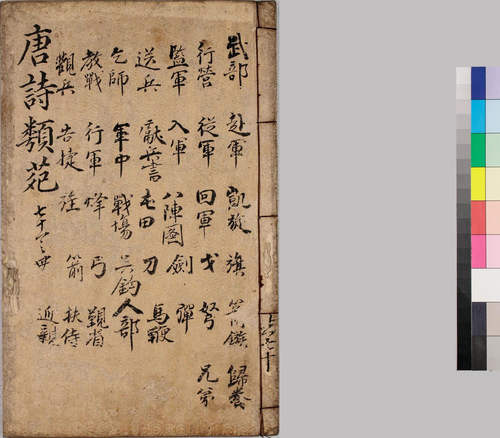 武部 赴軍 凱旋 旗 歸養
行營 從軍 回軍 戈 弩 兄弟
監軍 入軍 八陣圖 劍 彈
送兵 獻兵書 屯田 刀 馬鞭
乞師 軍中 戰場 吳鉤 人部
教戰 行軍 烽 弓 覲省
觀兵 告捷 旌 箭 扶侍
唐詩類苑